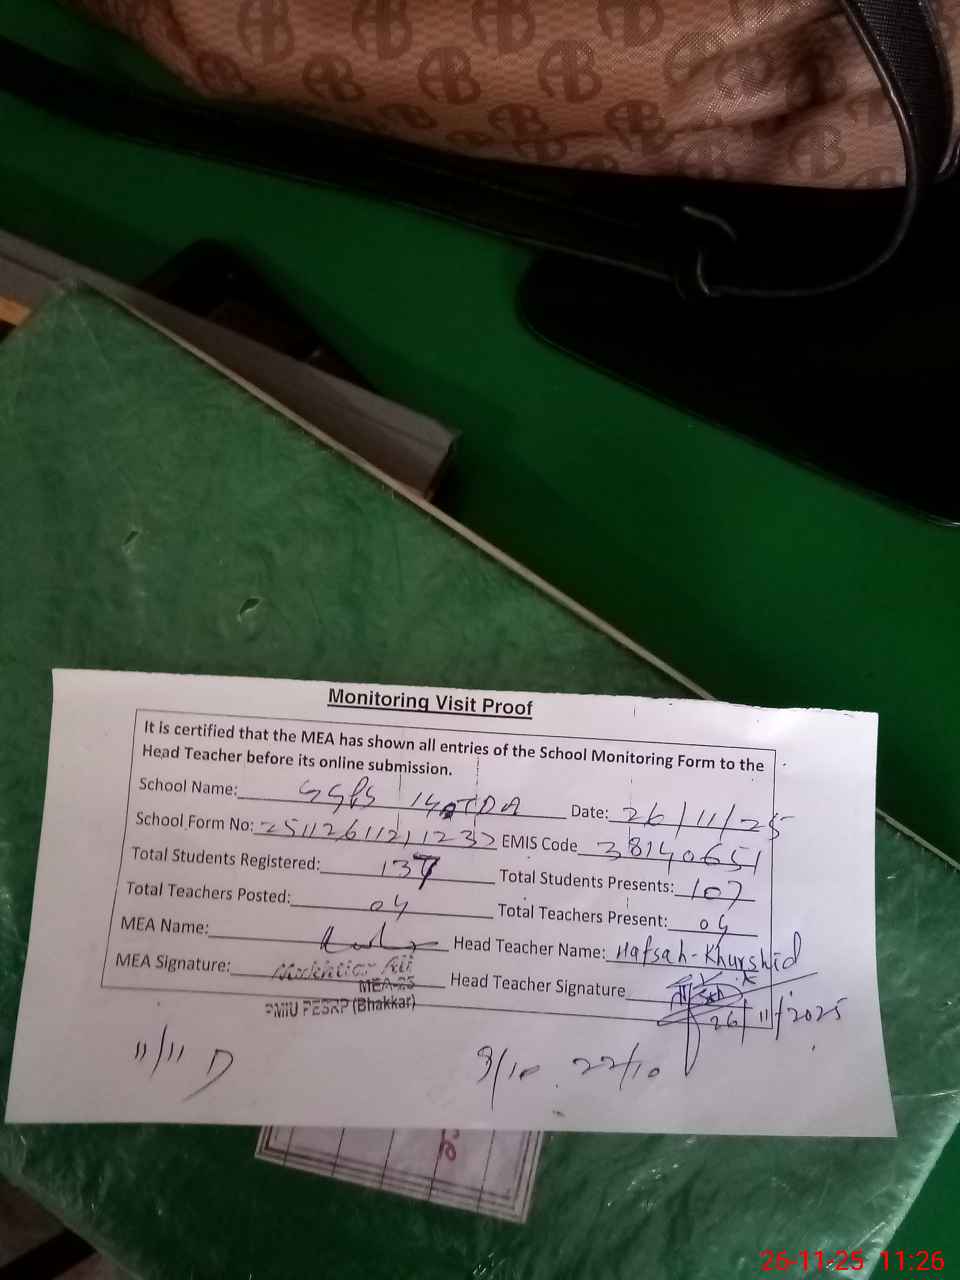 Monitoring Visit Proof
It is certified that the MEA has shown all entries of the School Monitoring Form to the
Head Teacher before its online submission.
School Name: GGPS 14 TDA Date: 26/11/25
School Form No: EMIS Code 38140651
Total Students Registered: 137 Total Students Presents: 107
Total Teachers Posted: 04 Total Teachers Present: 04
MEA Name: Head Teacher Name: Hafsah-Khurshid
MEA Signature: Head Teacher Signature
MEA-25
PMIU PESRP (Bhakkar)
26/11/2025
11/11 D 9/10 22/10
26-11-25 11:26